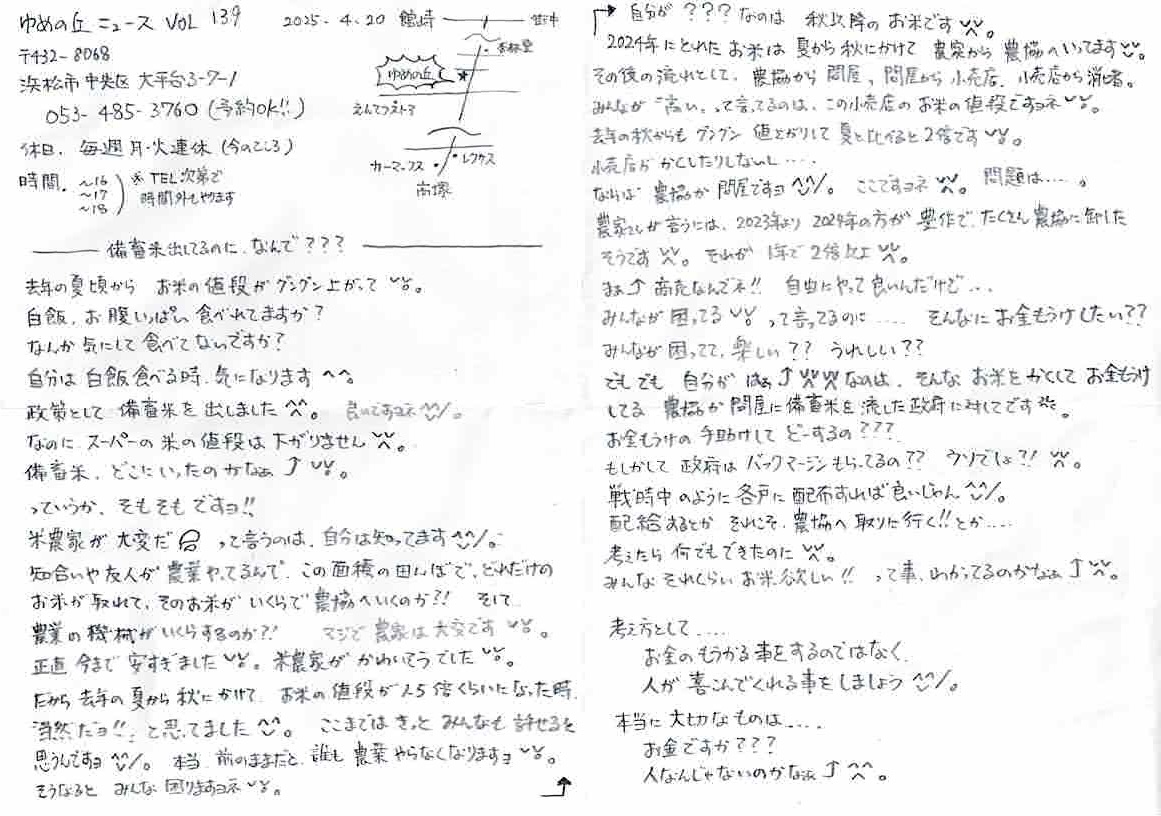 ゆめの丘ニュース VOL 139
2025-4.20 館崎
〒432-8068
浜松市中央区大平台3-7-1
053-485-3760 (予約OK!!)
休日. 毎週月・火連休 (今のところ)
時間. ~16
~17
~18
※ TEL次第で
時間外もやります
街中
杏林堂
ゆめの丘
えんてつストア
カーマックス
レクサス
高塚
備畜米出してるのに、なんで???
去年の夏頃から お米の値段がグングン上がって
白飯、お腹いっぱい食べれてますか?
なんか気にして食べてないですか?
自分は白飯食べる時、気になります^^。
政策として 備畜米を出しました^^。 良いですヨネ^^/。
なのに、スーパーの米の値段は下がりません
備畜米、どこにいったのかなぁ↑
っていうか、そもそもですヨ!!
米農家が大変だ って言うのは、自分は知ってます^^/。
知合いや友人が農業やってるんで、この面積の田んぼで、どれだけの
お米が取れて、そのお米がいくらで農協へいくのか?! そして
農業の機械がいくらするのか?! マジで農家は大変です
正直今まで安すぎました 米農家がかわいそうでした
だから去年の夏から秋にかけて、お米の値段が1.5倍くらいになった時、
「当然だヨ!!」と思ってました^^。 ここまではきっとみんなも許せると
思うんですヨ^^/。 本当、前のままだと、誰も農業やらなくなりますヨ
そうなるとみんな困りますヨネ
自分が???なのは 秋以降のお米です
2024年にとれたお米は夏から秋にかけて 農家から農協へいってます
その後の流れとして、農協から問屋、問屋から小売店、小売店から消費者。
みんなが「高い」って言ってるのは、この小売店のお米の値段ですヨネ
去年の秋からもグングン値上がりして夏と比べると2倍です
小売店がかくしたりしないし....
ならば農協か問屋ですヨ^^/。 ここですヨネ 問題は....。
農家さんが言うには、2023年より2024年の方が豊作で、たくさん農協に卸した
そうです それが1年で2倍以上
まぁ↑商売なんでネ!! 自由にやって良いんだけど...
みんなが困ってる って言ってるのに.... そんなにお金もうけしたい??
みんなが困ってて、楽しい?? うれしい??
でもでも 自分がはぁ↑なのは、そんなお米をかくしてお金もうけ
してる 農協か問屋に備畜米を流した政府に対してです
お金もうけの手助けしてどーするの???
もしかして政府はバックマージンもらってるの?? ウソでしょ?!
戦時中のように各戸に配布すれば良いじゃん^^/。
配給するとか それこそ、農協へ取りに行く!!とか....
考えたら何でもできたのに
みんなそれくらいお米欲しい!! って事、わかってるのかなぁ↑
考え方として....
お金のもうかる事をするのではなく、
人が喜こんでくれる事をしましょう^^/。
本当に大切なものは....
お金ですか???
人なんじゃないのかなぁ↑^^。